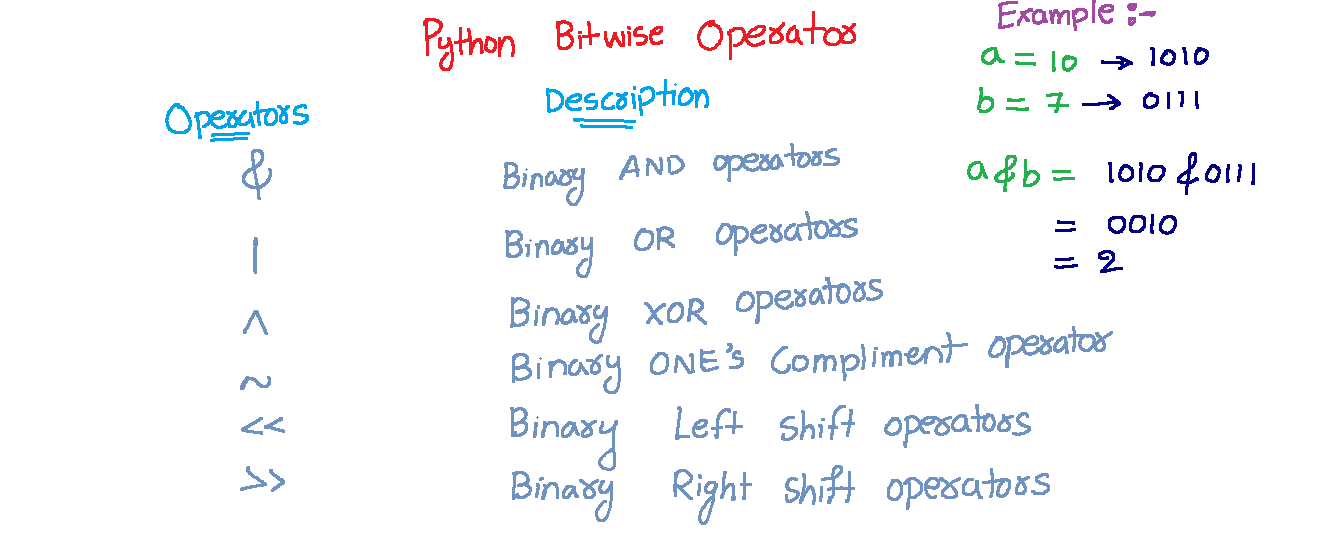 Python Bitwise Operator
Operators Description
& Binary AND operators
| Binary OR operators
^ Binary XOR operators
~ Binary ONE's Compliment operator
<< Binary Left shift operators
>> Binary Right shift operators
Example :-
a = 10 → 1010
b = 7 → 0111
a & b = 1010 & 0111
= 0010
= 2